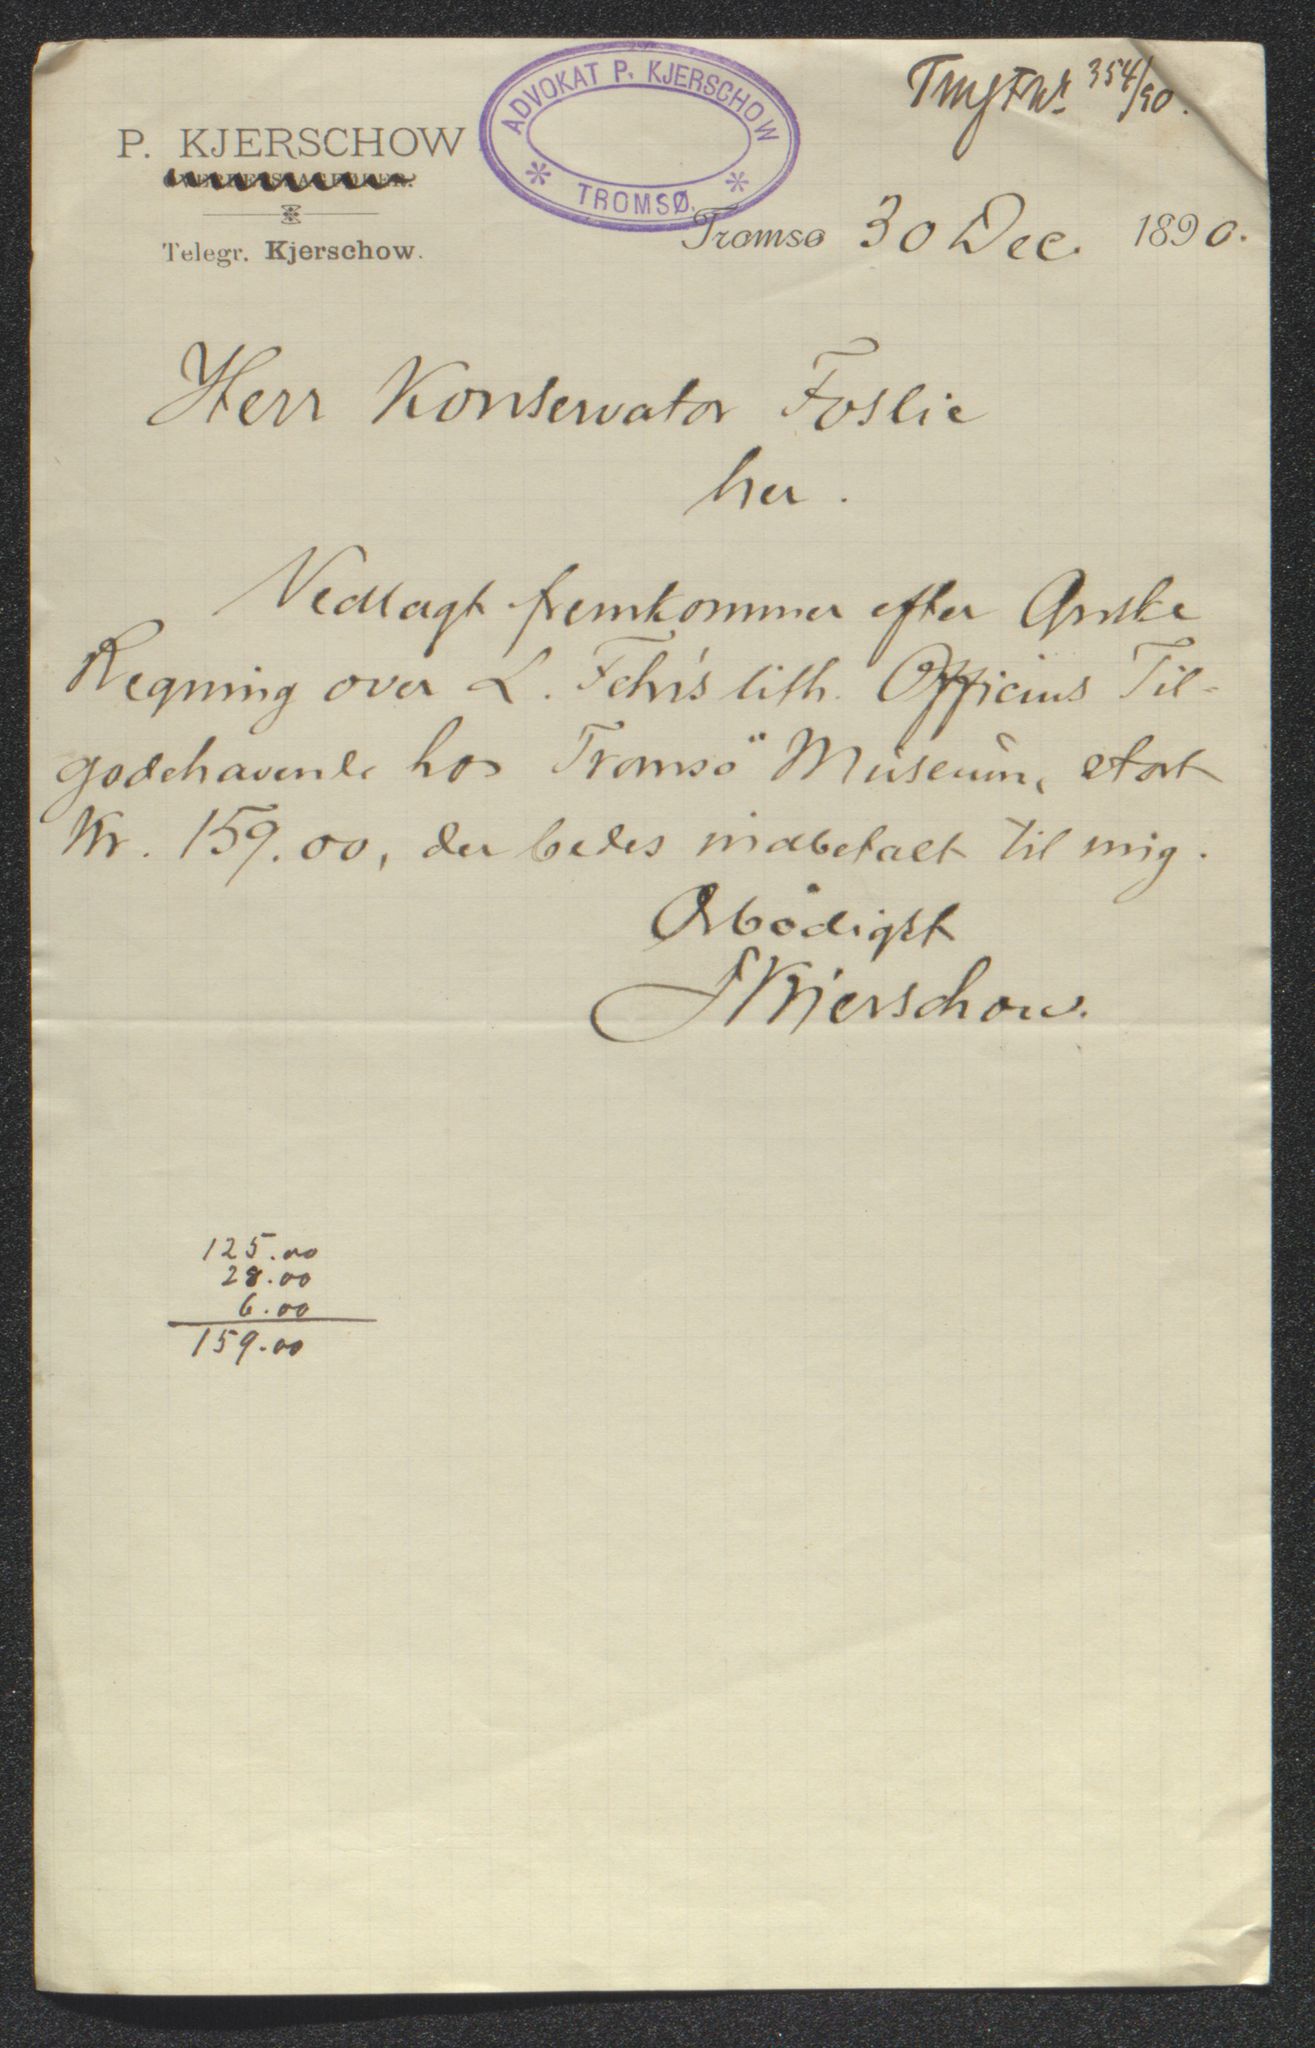 ADVOKAT P. KJERSCHOW
TROMSØ.
354/90.
P. KJERSCHOW
OVERRETSSAGFØRER.
Telegr. Kjerschow.
Tromsø 30 Dec. 1890.
Herr Konservator Foslie
her.
Vedlagt fremkommer efter Ønske
Regning over L. Fehrs lith. Officins Til-
godehavende hos Tromsö Museum, stort
Kr. 159.00, der bedes indbetalt til mig.
Ærbödigst
PKjerschow.
125.00
28.00
6.00
159.00